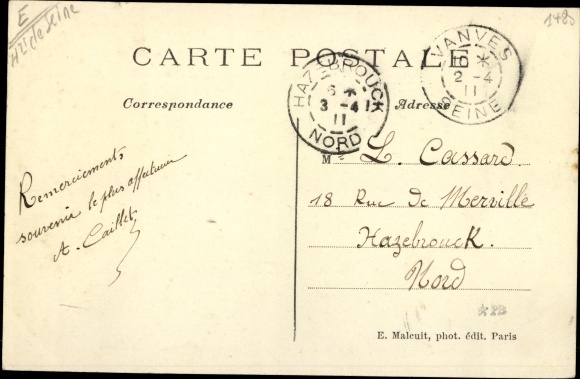 E
Hts de Seine
1485
CARTE POSTALE
HAZEBROUCK
6 *
3 -4
11
NORD
VANVES
10 *
2 -4
11
SEINE
Correspondance
Adresse
Remerciements
souvenir le plus affectueux
A. Caillet
M L. Cassard.
18 Rue de Merville
Hazebrouck.
Nord
E. Malcuit, phot. édit. Paris